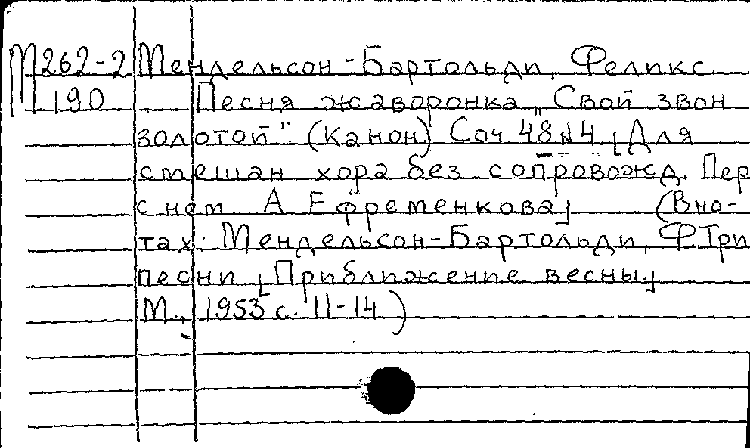 М262-2 Мендельсон-Бартольди, Феликс
М190 Песня жаворонка „Свой звон
золотой" (Канон) Соч. 48 №4 [Для
смешан хора без сопровожд. Пер
с нем А Ефременкова] (В но-
тах: Мендельсон-Бартольди, Ф Три
песни [Приближение весны]
М., 1953 с. 11-14)